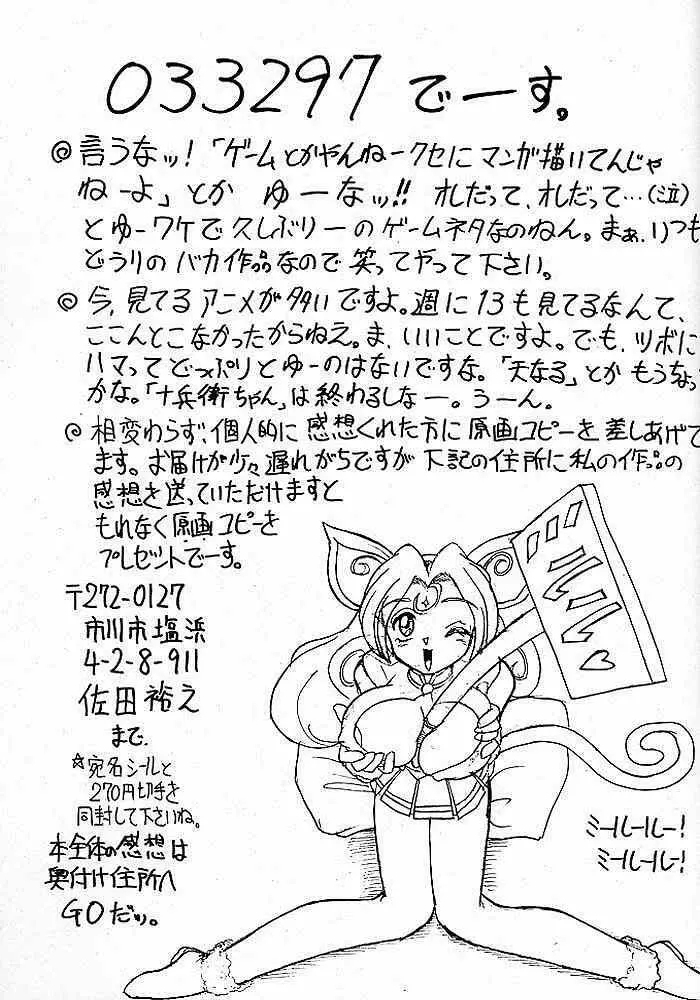 033297 でーす。
◎言うなッ!「ゲームとかやんねークセにマンガ描いてんじゃ
ねーよ」とか ゆーなッ!! オレだって、オレだって…(泣)
とゆーワケで久しぶりーのゲームネタなのねん。まぁ、いつも
どうりのバカ作品なので 笑ってやって下さい。
◎今、見てるアニメが多いですよ。週に13も見てるなんて、
ここんとこなかったからねえ。ま、いいことですよ。でも、ツボに
ハマってどっぷりとゆーのはないですな。「天なる」とか もうな
かな。「十兵衛ちゃん」は終わるしなー。うーん。
◎相変わらず、個人的に感想くれた方に原画コピーを差しあげて
ます。お届けが少々遅れがちですが下記の住所に私の作品の
感想を送っていただけますと
もれなく原画コピーを
プレゼントでーす。
〒272-0127
市川市塩浜
4-2-8-911
佐田裕之
まで
☆宛名シールと
270円切手を
同封して下さいね。
本全体の感想は
奥付け住所へ
GOだッ。
ドルルル♡
ミールールー!
ミールルー!